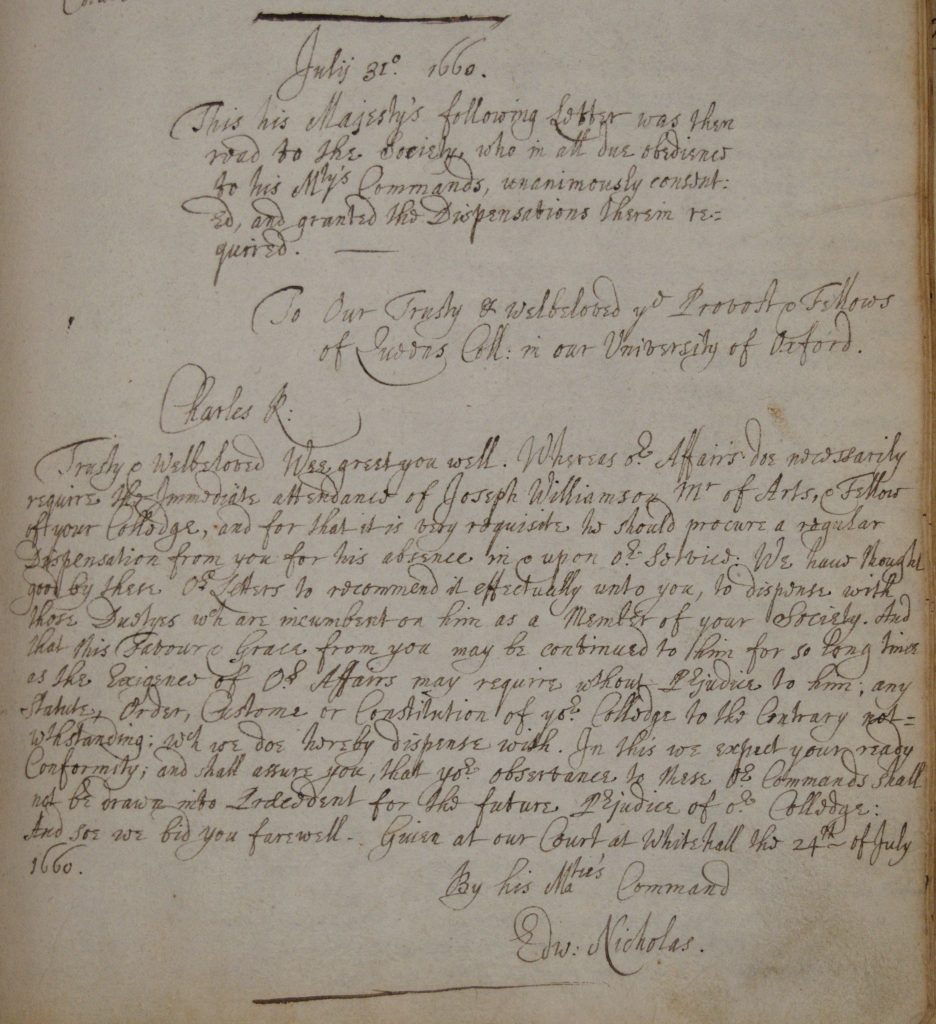 July 31º. 1660.
This his Majesty's following Letter was then
read to the Society, who in all due obedience
to his Mty's Commands, unanimously consent:
ed, and granted the Dispensations therein re=
quired.
To Our Trusty & welbeloved ye Provost & Fellows
of Queens Coll: in our University of Oxford.
Charles R:
Trusty & Welbeloved Wee greet you well. Whereas or Affairs doe necessarily
require the Immediate attendance of Joseph Williamson Mr of Arts, & Fellow
of your Colledge, and for that it is very requisite he should procure a regular
Dispensation from you for his absence in & upon or Service: We have thought
good by these Or Letters to recommend it effectually unto you, to dispense with
those Duetyes wch are incumbent on him as a Member of your Society. And
that this Favour & Grace from you may be continued to him for so long time
as the Exigence of Or Affairs may require wthout Prejudice to him; any
Statute, Order, Custome or Constitution of yor Colledge to the Contrary not=
wthstanding: wch we doe hereby dispense with. In this we expect your ready
Conformity; and shall assure you, that yor observance to these Or Commands shall
not be drawn into Precedent for the future Prejudice of or Colledge:
And soe we bid you farewell. Given at our Court at Whitehall the 24th of July
1660.
By his Maties Command
Edw: Nicholas.